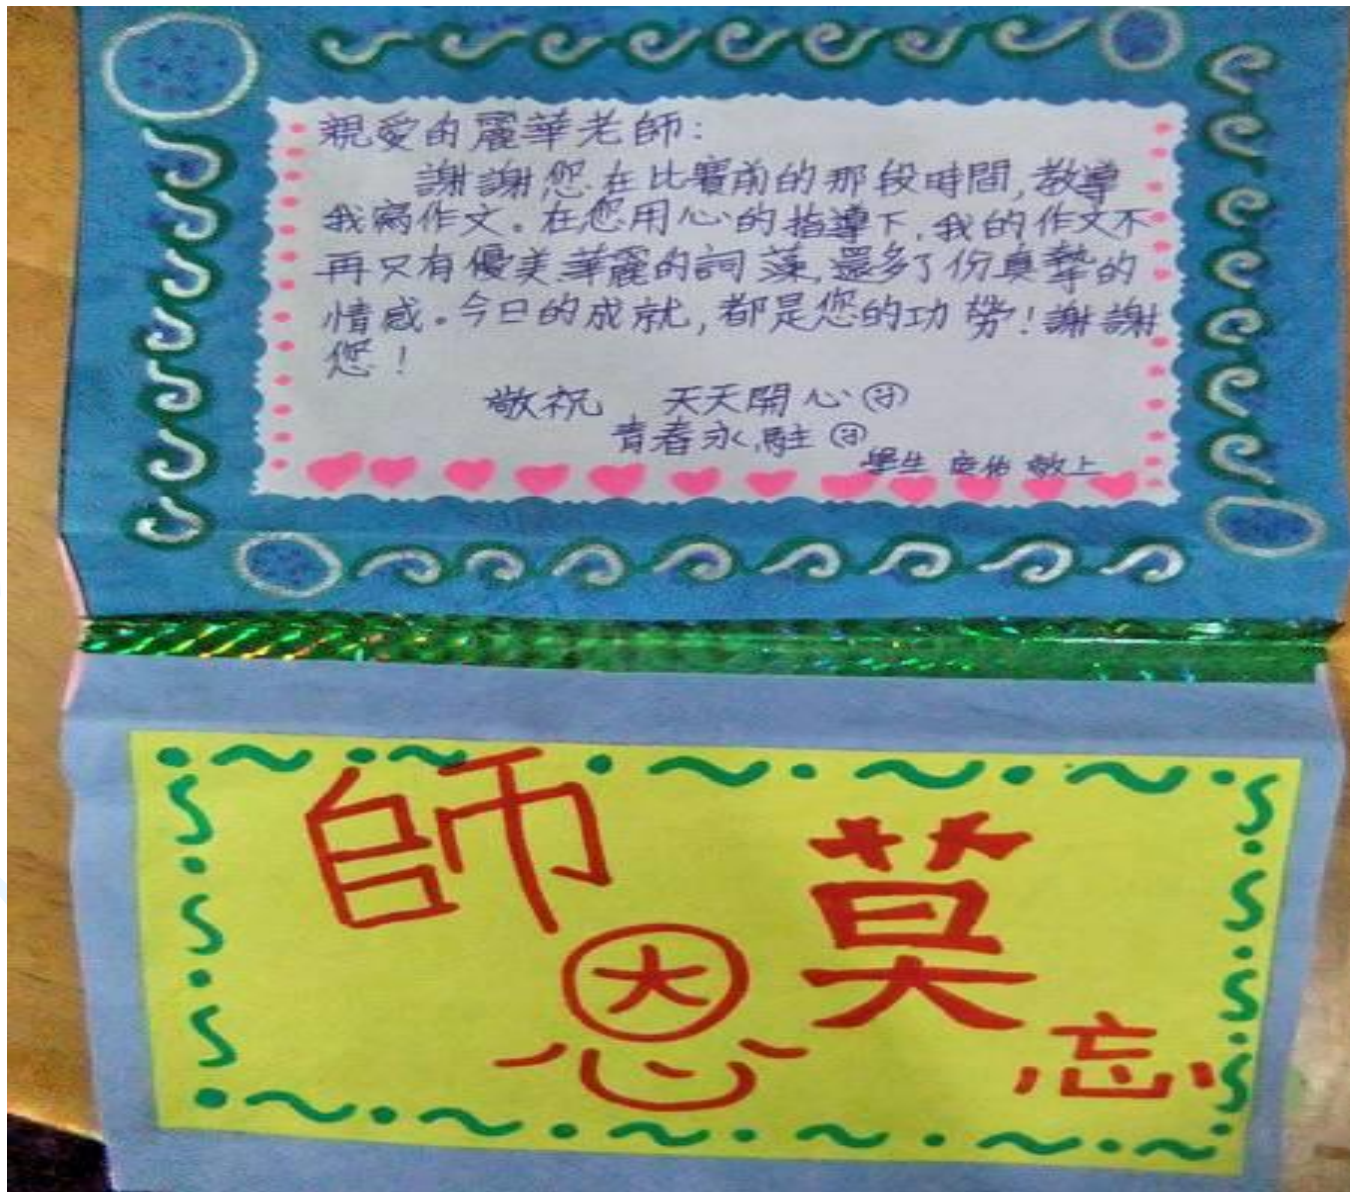 親愛的麗華老師:
謝謝您在比賽前的那段時間,教導
我寫作文。在您用心的指導下,我的作文不
再只有優美華麗的詞藻,還多了份真摯的
情感。今日的成就,都是您的功勞!謝謝
您!
敬祝 天天開心
青春永駐
學生 敬上
師恩莫忘